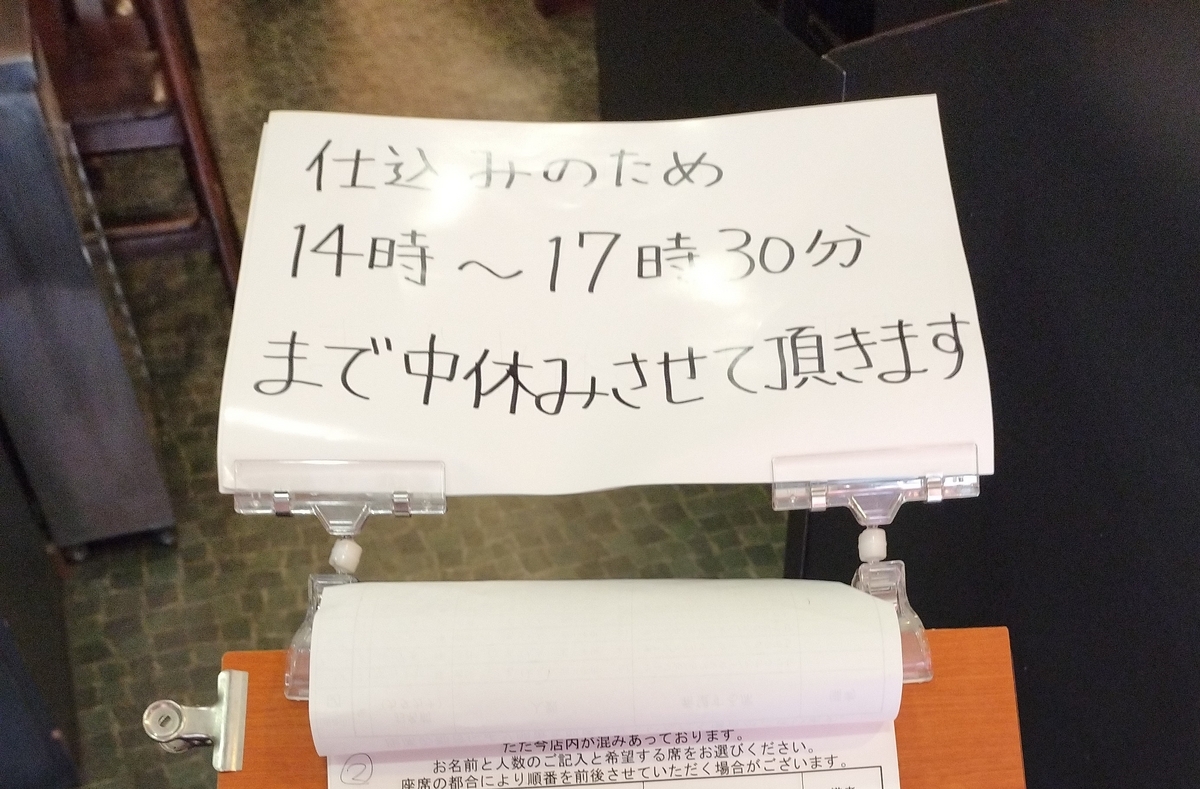 仕込みのため
14時～17時30分
まで中休みさせて頂きます
ただ今店内が混みあっております。
②
お名前と人数のご記入と希望する席をお選びください。
座席の都合により順番を前後させていただく場合がございます。